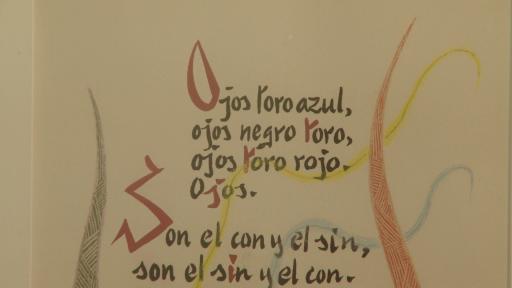 Ojos toro azul,
ojos negro toro,
ojos toro rojo.
Ojos.
Son el con y el sin,
son el sin y el con.